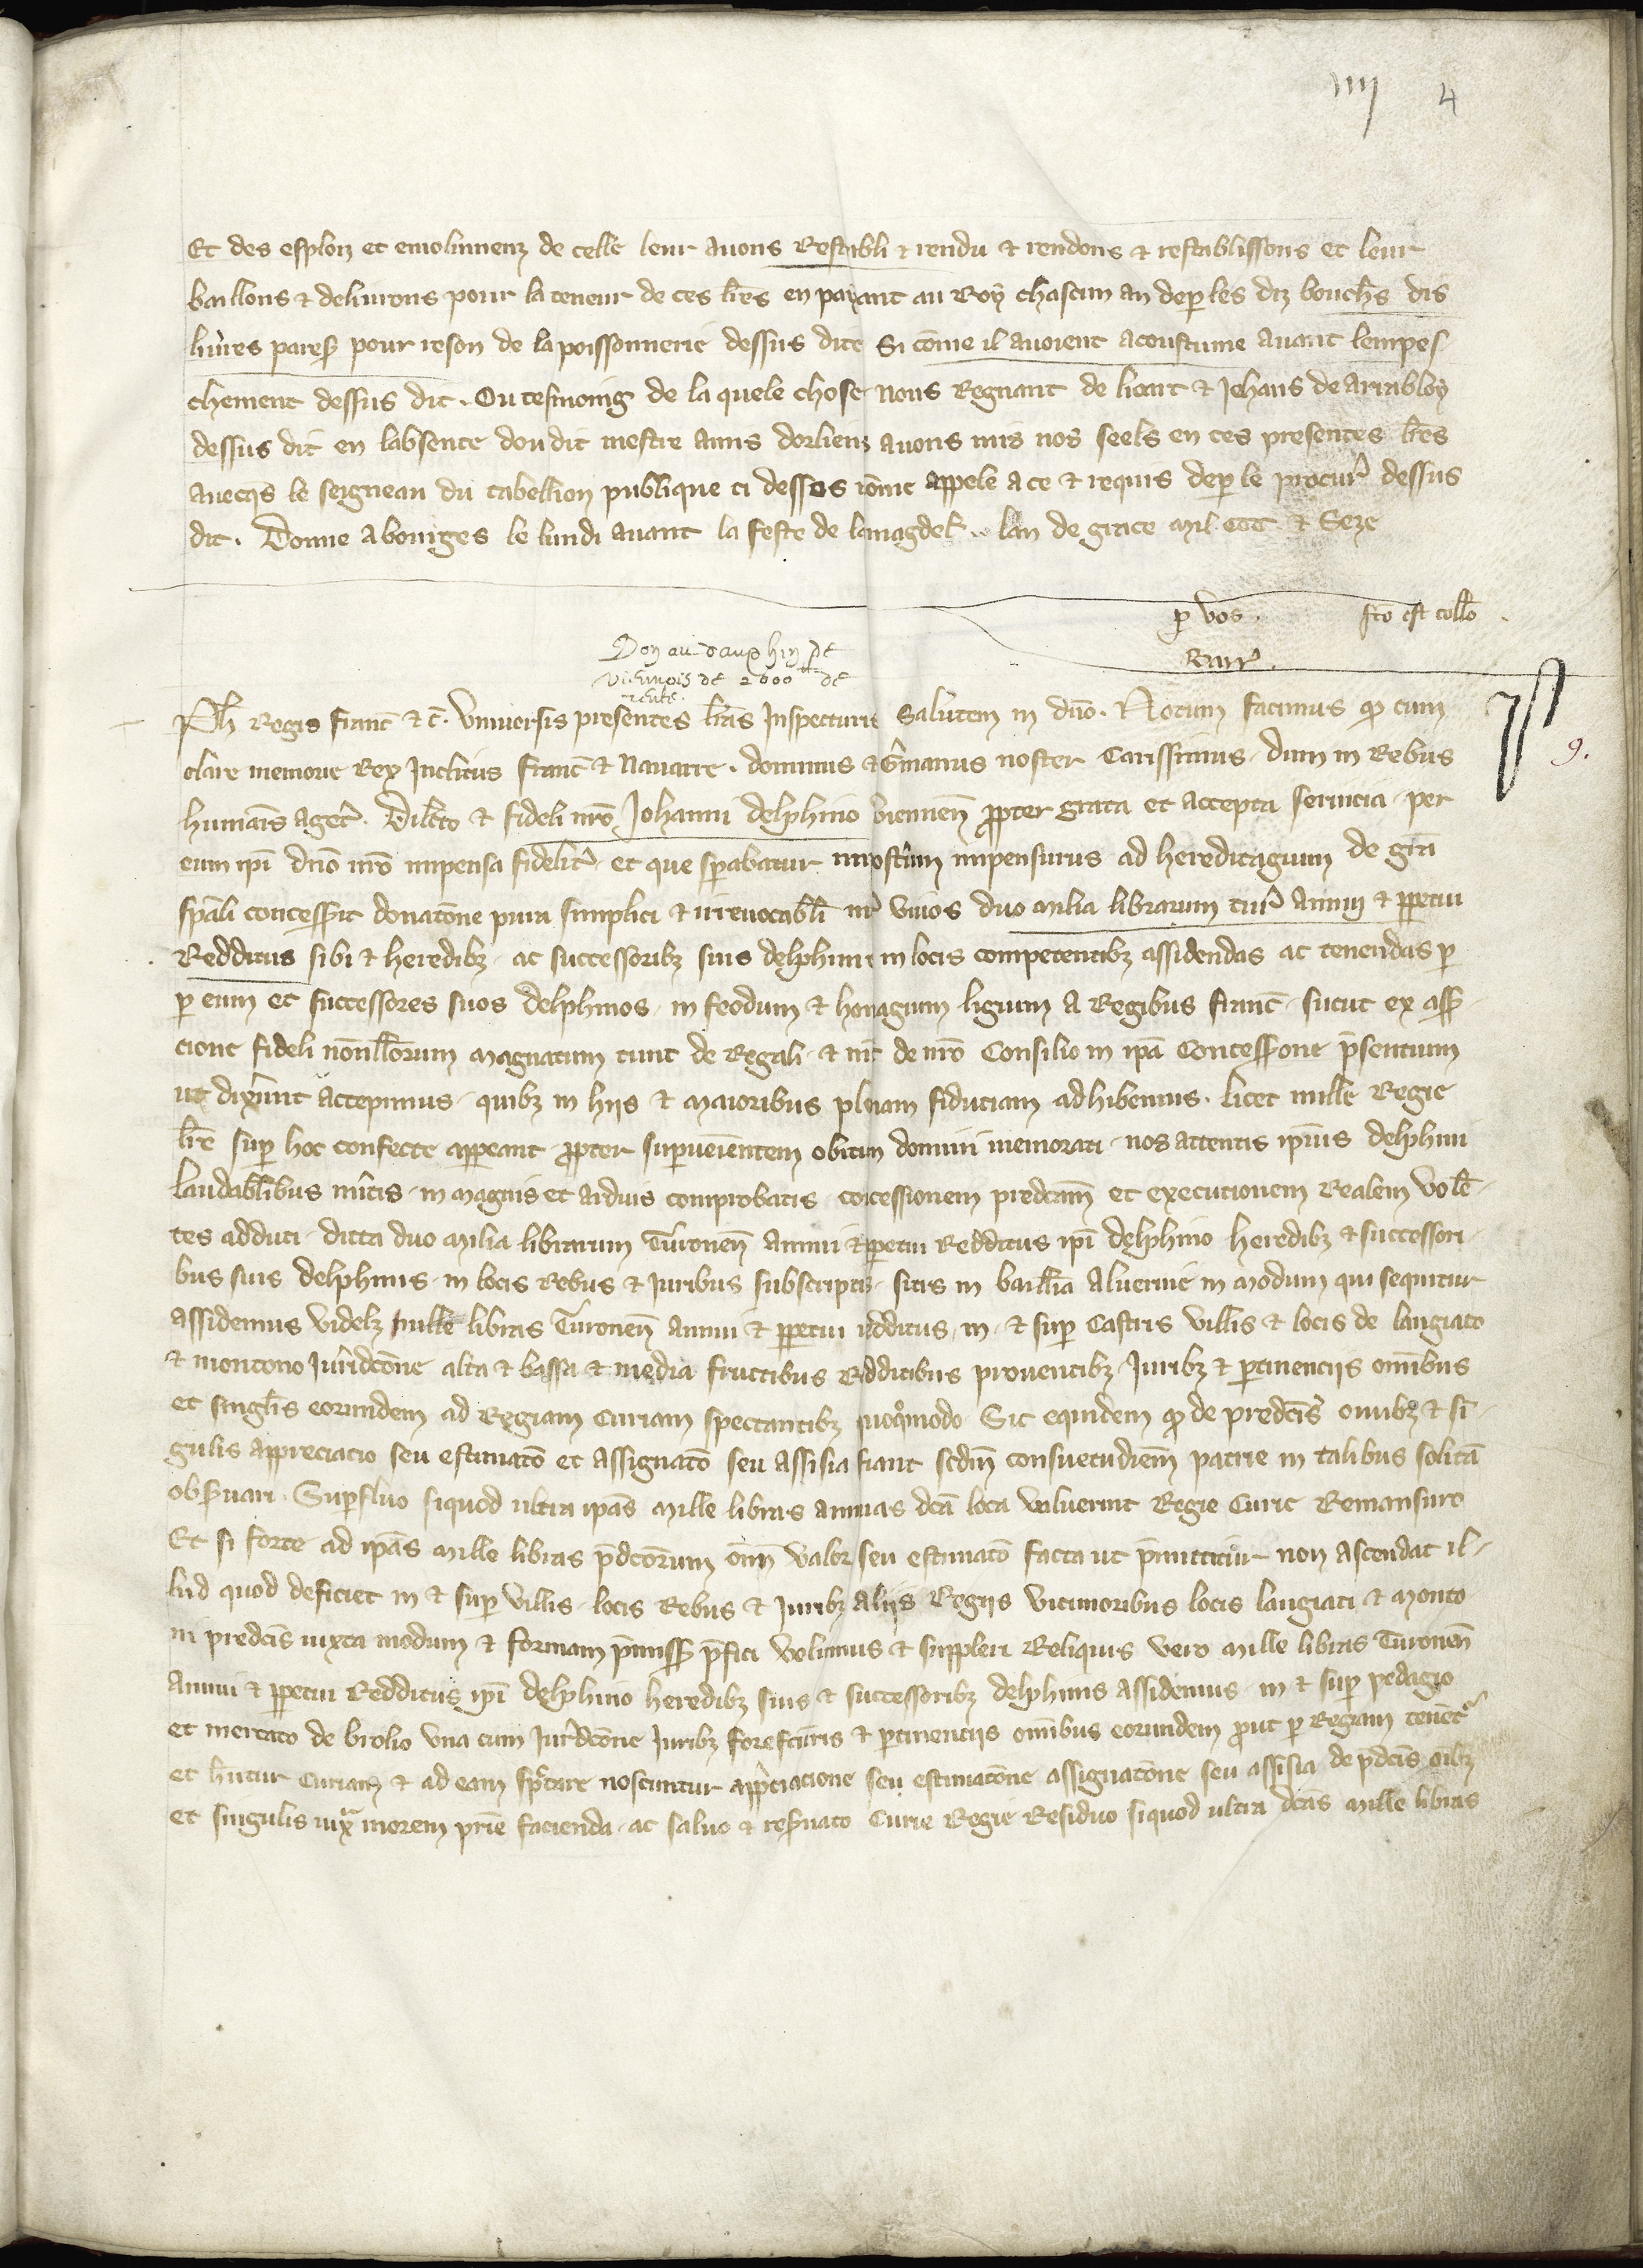 IIIJ 4
Et des esploiz et emolumenz de celle leur avons Restabli & rendu & rendons & restablissons et leur
baillons & delivrons pour la teneur de ces lres en paiant au Roy chascun an de p les diz bouchs dis
livres pares pour reson de la poissonnerie dessus dite Si come il avoient acoustume avant lempes
chement dessus dit. Ou tesmoing de la quele chose nous Regnaut de & Jehans de Arrabloy
dessus dit en labsence dou dit mestre amis dorlienz avons mis nos seels en ces presentes lres
avecqs le seigneau du tabellion publique ci dessos come appele a ce & requis de p le procur dessus
dit. Donne a bourges le lundi avant la feste de lamagdel. lan de grace mil ccc & Seze
p vos. fco est collo
Barr.
Don au dauphin de
viennois de 2000 de
rente.
Ph Regis Franc & c. Universis presentes lras Inspecturis Salutem in dno. Notum facimus q cum
clare memorie Rex Inclitus Franc & Navarre. dominus & Gmanus noster Carissimus dum in Rebus
humanis aget. Dilcto & fideli nro Johanni delphino viennen ppter grata et accepta servicia per
eum ipi dno nro impensa fidelit et que sperabatur impensurus ad hereditagium de gra
spali concessit donacone pura simplici & irrevocabli int vivos duo milia librarum tur Annui & ppetui
Redditus sibi & heredibz ac successoribz suis delphinis in locis competentibz assidendas ac tenendas p
p eum et successores suos delphinos in feodum & homagium ligium a Regibus franc. sicut ex asser
cione fideli nonllorum magnatum tunc de Regali & nc de nro Consilio in ipa Concessione psentium
ut dixerunt accepimus quibz in hiis & Maioribus plenam fiduciam adhibemus. licet nulle Regie
lre sup hoc confecte appareant ppter supvenientem obitum domini memorati nos attentis ipius delphini
laudabilibus mitis in magnis et arduis comprobatis concessionem predcam et execucionem Realem vole
tes adduci dicta duo milia librarum Turonen Annui & ppetui Redditus ipi delphino heredibz & successori
bus suis delphinis in locis Rebus & Juribus subscriptis sitis in baillia Alvernie in modum qui sequitur
assidemus videlz mille libras Turonen annui & ppetui redditus in & sup Castris villis & locis de langiaco
& montono Juridcone alta & bassa & media fructibus Redditibus proventibz Juribz & ptinenciis omibus
et singlis eorundem ad Regiam Curiam spectantibz quoqmodo Sic equidem q de predcis omibz & si
gulis appreciacio seu estimaco et assignaco seu assisia fiant scdm consuetudiem patrie in talibus solita
observari. Supfluo siquod ultra ipas mille libras annuas dca loca valuerint Regie Curie Remansuro
Et si forte ad ipas mille libras pdcorum oim valor seu estimaco facta ut pmittitur non ascendat il
lud quod deficiet in & sup villis locis Rebus & Juribz aliis Regiis vicinioribus locis langiaci & Monto
ni predcis iuxta modum & formam pmiss pfici volumus & suppleri Reliquis vero mille libras Turonen
Annui & ppetui Redditus ipi delphino heredibz suis & successoribz delphinis assidemus in & sup pedagio
et mercato de brolio una cum Jurdcone Juribz forefcturis & ptinenciis omibus eorundem prout p Regiam tenet
et hntur Curiam & ad eam spctare noscuntur appciacione seu estimacone assignacone seu assisia de pdcis oibz
et singulis iuxa morem prie facienda ac salvo & reservato Curie Regie Residuo siquod ultra dcas mille libras
9.